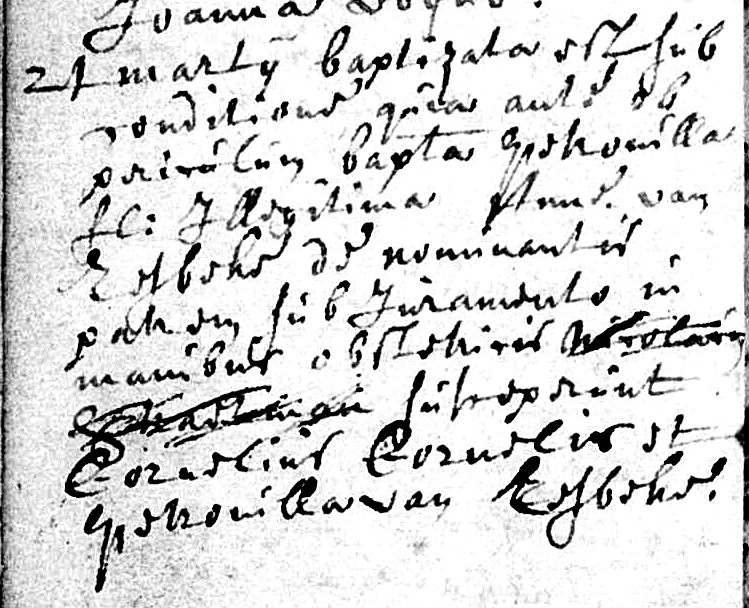 Joanna
21 martij baptizata est sub
conditione quia ante ob
periculum bapta Petronilla
fl: Illegitima Annae van
Resbeke denominantis
patrem sub Juramento in
manibus obstetricis
susceperunt
Cornelius Cornelis et
Petronilla van Resbeke.